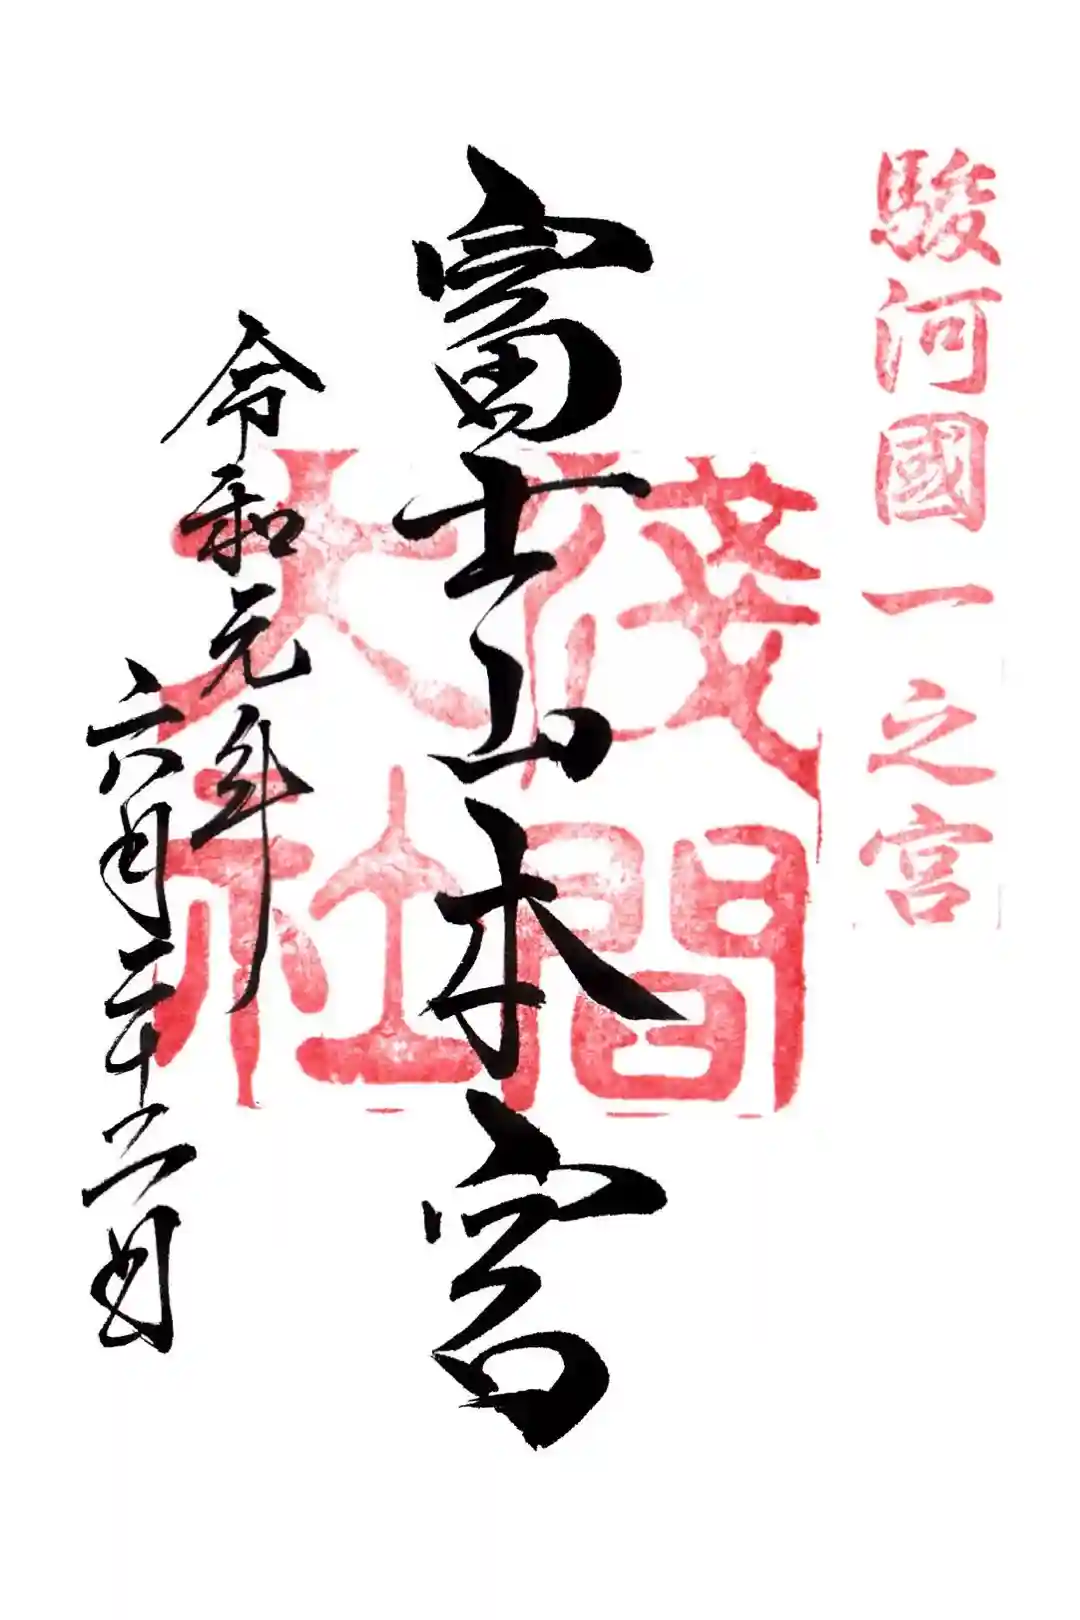 駿河國一之宮
富士山本宮
淺間大社
令和元年
六月二十二日